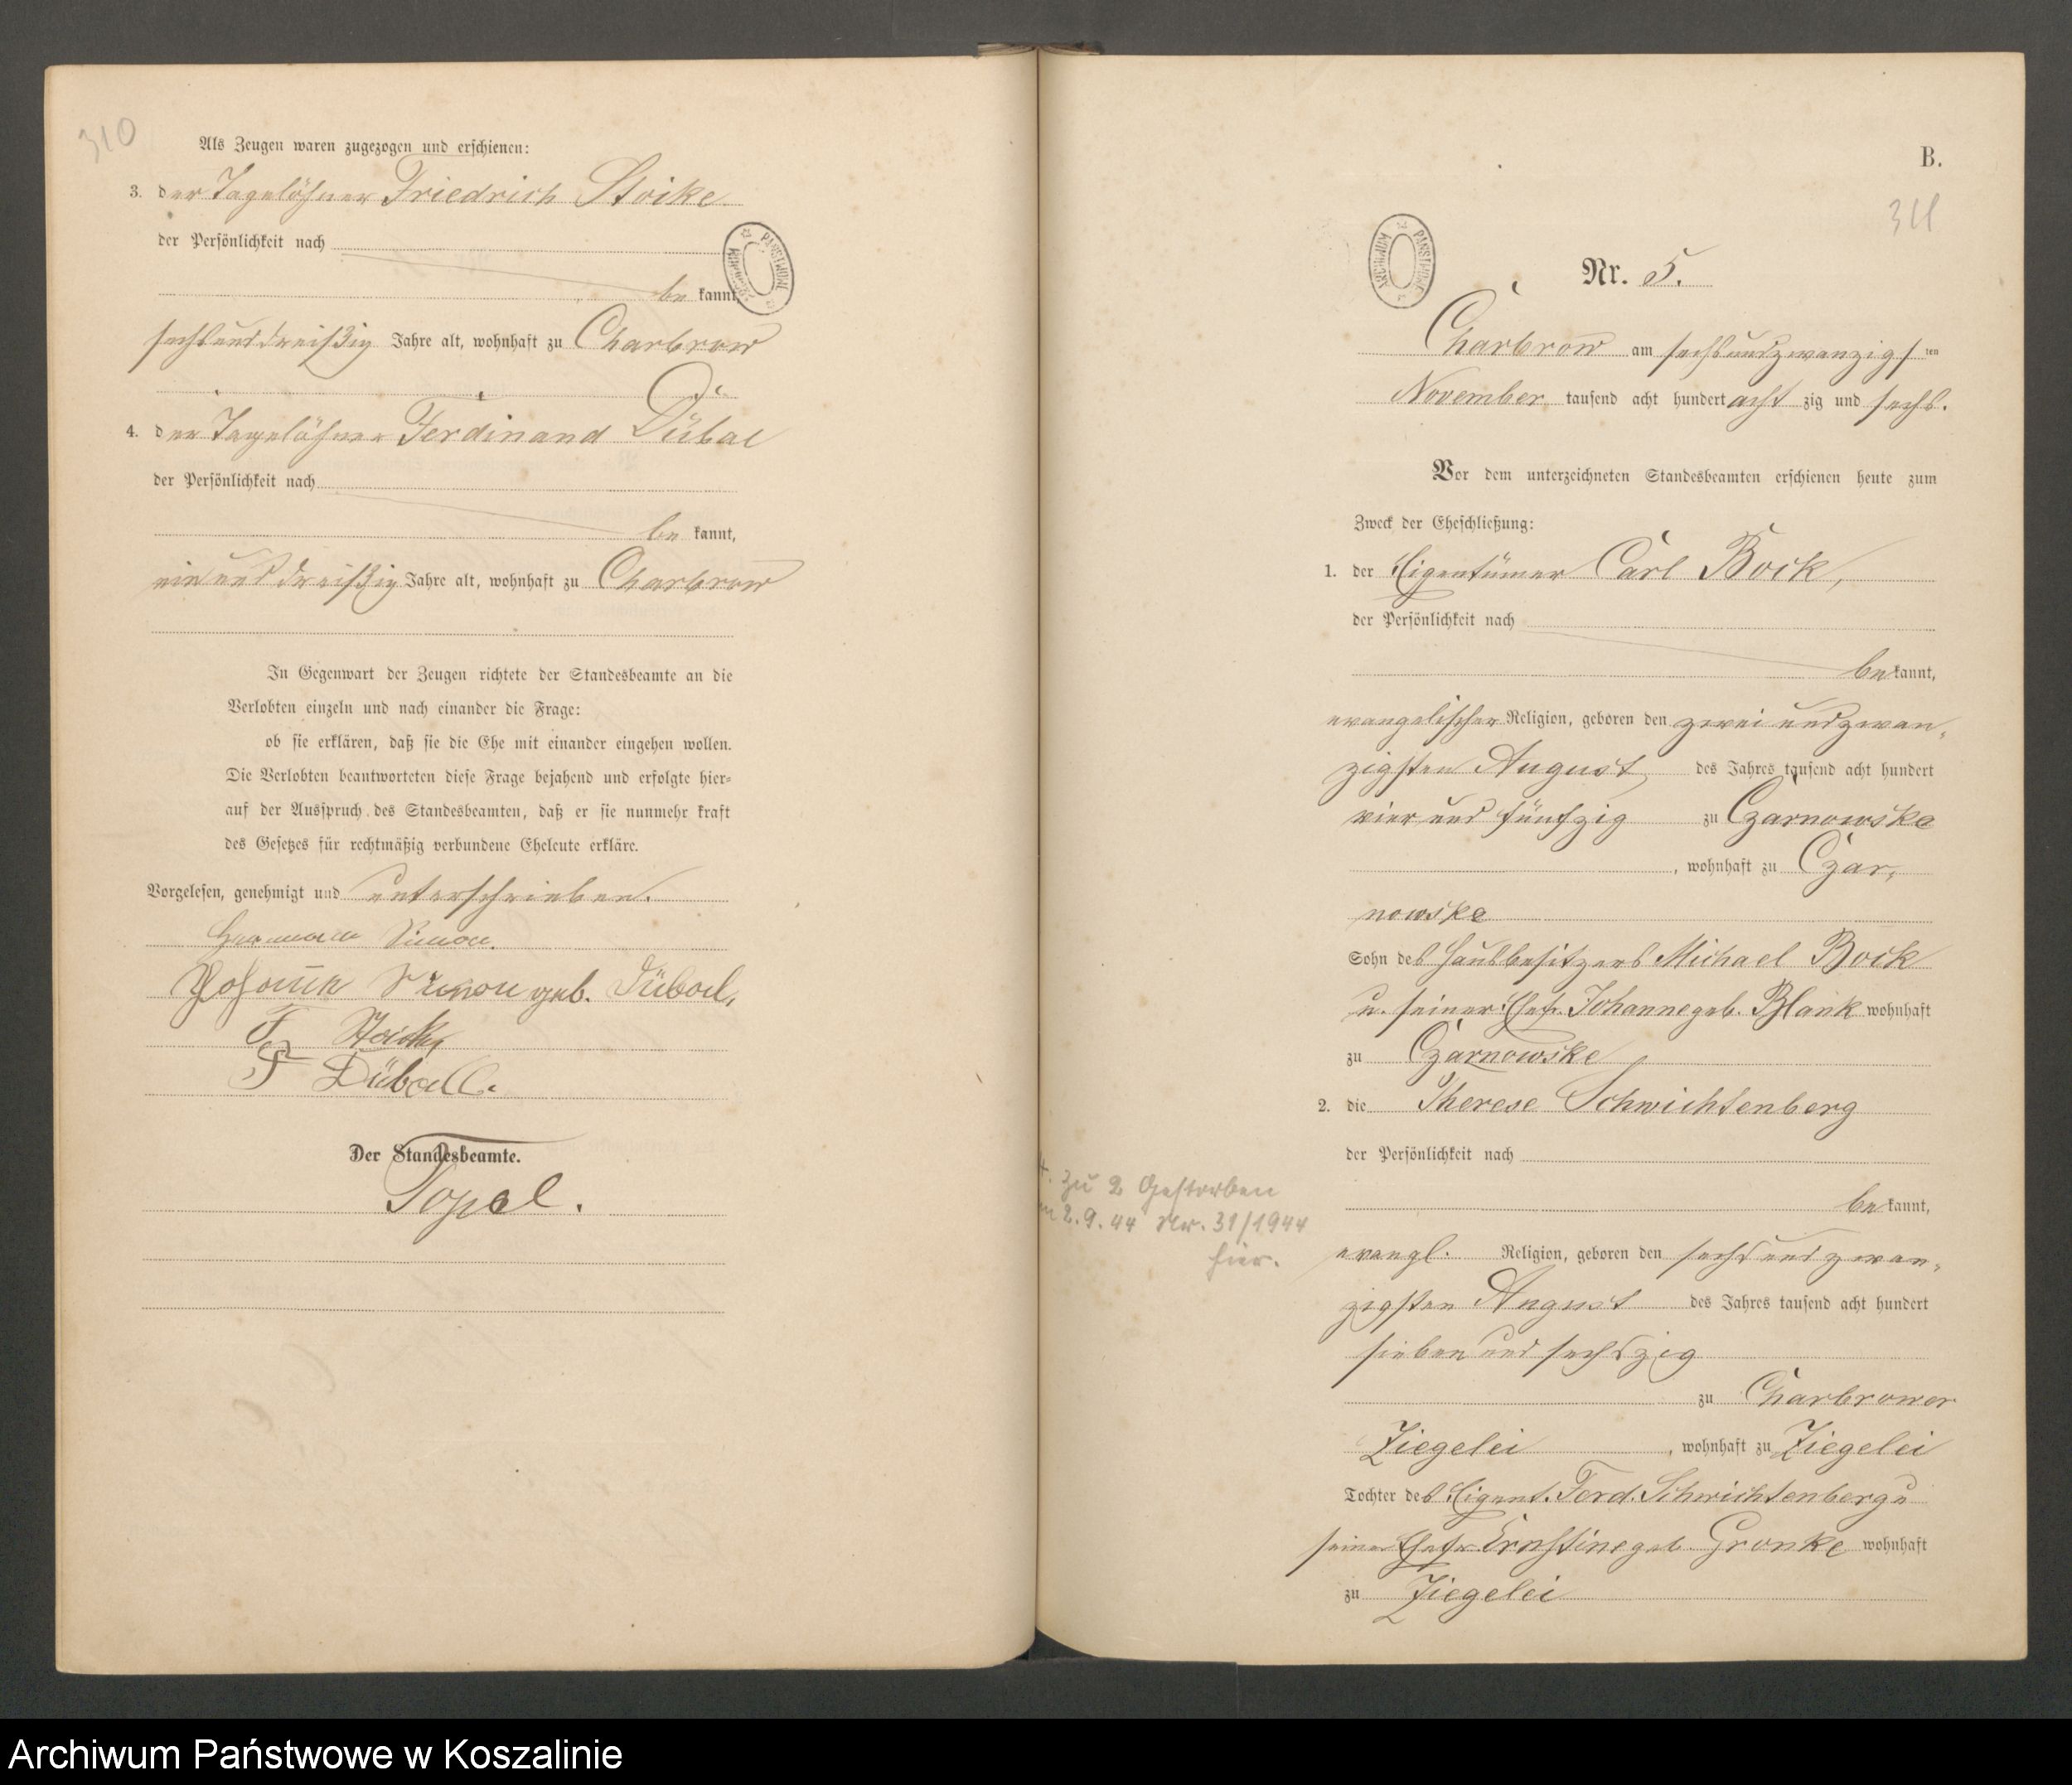 310
Als Zeugen waren zugezogen und erschienen:
3. der Tagelöhner Friedrich Stoike
der Persönlichkeit nach
be kannt,
sechsunddreißig Jahre alt, wohnhaft zu Charbrow
4. der Tagelöhner Ferdinand Dübal
der Persönlichkeit nach
be kannt,
einunddreißig Jahre alt, wohnhaft zu Charbrow
In Gegenwart der Zeugen richtete der Standesbeamte an die
Verlobten einzeln und nach einander die Frage:
ob sie erklären, daß sie die Ehe mit einander eingehen wollen.
Die Verlobten beantworteten diese Frage bejahend und erfolgte hier-
auf der Ausspruch des Standesbeamten, daß er sie nunmehr kraft
des Gesetzes für rechtmäßig verbundene Eheleute erkläre.
Vorgelesen, genehmigt und unterschrieben.
Hermann Simon.
Simon geb. Dübal,
F
F Düball.
Der Standesbeamte.
Topel.
ARCHIWUM PAŃSTWOWE
B.
311
ARCHIWUM PAŃSTWOWE
Nr. 5.
Charbrow am sechsundzwanzigsten
November tausend acht hundert acht zig und sechs.
Vor dem unterzeichneten Standesbeamten erschienen heute zum
Zweck der Eheschließung:
1. der Eigentümer Carl Bock,
der Persönlichkeit nach
be kannt,
evangelischer Religion, geboren den zweiundzwan-
zigsten August des Jahres tausend acht hundert
vier und fünfzig zu Czarnowske
, wohnhaft zu Czar-
nowske
Sohn des Hausbesitzers Michael Bock
u. seiner Ehefr. Johanne geb. Blank wohnhaft
zu Czarnowske
2. die Therese Schwichtenberg
der Persönlichkeit nach
be kannt,
evangl. Religion, geboren den sechsundzwan-
zigsten August des Jahres tausend acht hundert
sieben und sechszig
zu Charbrower
Ziegelei , wohnhaft zu Ziegelei
Tochter des Eigent. Ferd. Schwichtenberg u
seiner Ehefr Ernstine geb. Gronke wohnhaft
zu Ziegelei
zu 2 Gestorben
2.9.44 Nr. 31/1944
hier.
Archiwum Państwowe w Koszalinie